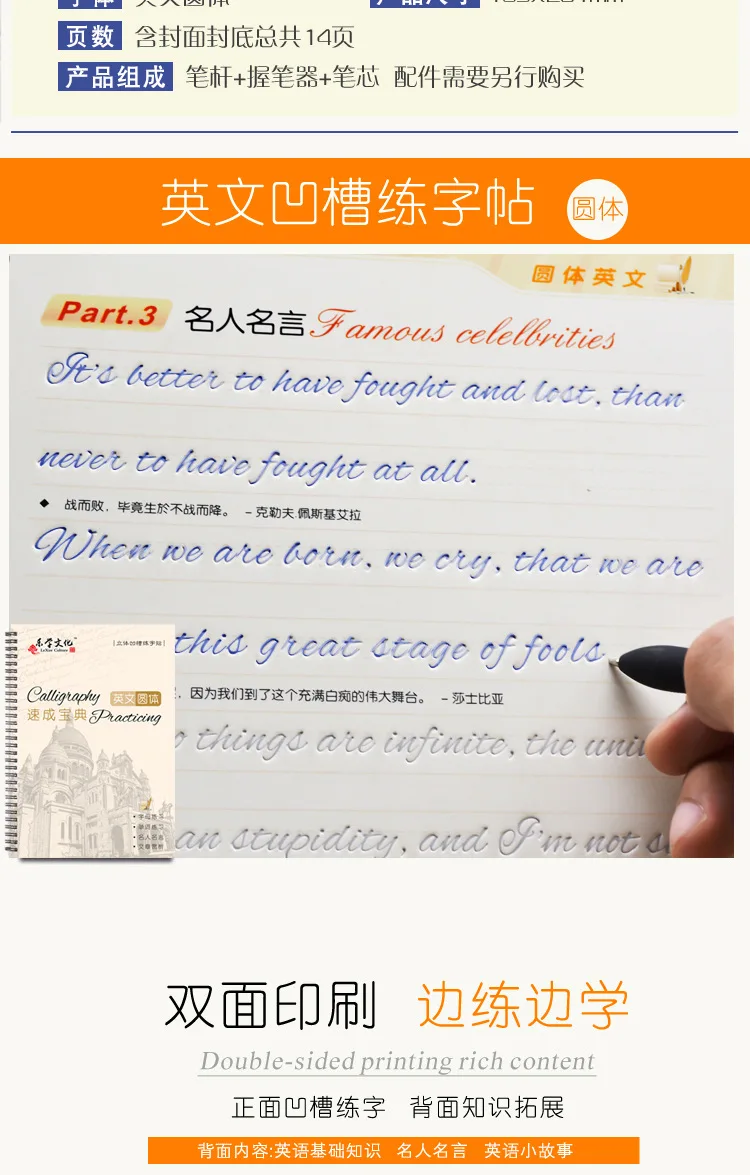 字体 英文圆体 产品尺寸
页数 含封面封底总共14页
产品组成 笔杆+握笔器+笔芯 配件需要另行购买
英文凹槽练字帖 圆体
圆体英文
Part.3 名人名言 Famous celelbrities
It's better to have fought and lost, than
never to have fought at all.
◆ 战而败，毕竟生於不战而降。 - 克勒夫.佩斯基艾拉
When we are born, we cry, that we are
this great stage of fools
，因为我们到了这个充满白痴的伟大舞台。 - 莎士比亚
o things are infinite, the uni
an stupidity, and I'm not s
乐学文化 立体凹槽练字帖
LeXue Culture
Calligraphy 英文圆体
速成宝典 Practicing
双面印刷 边练边学
Double-sided printing rich content
正面凹槽练字 背面知识拓展
背面内容:英语基础知识 名人名言 英语小故事